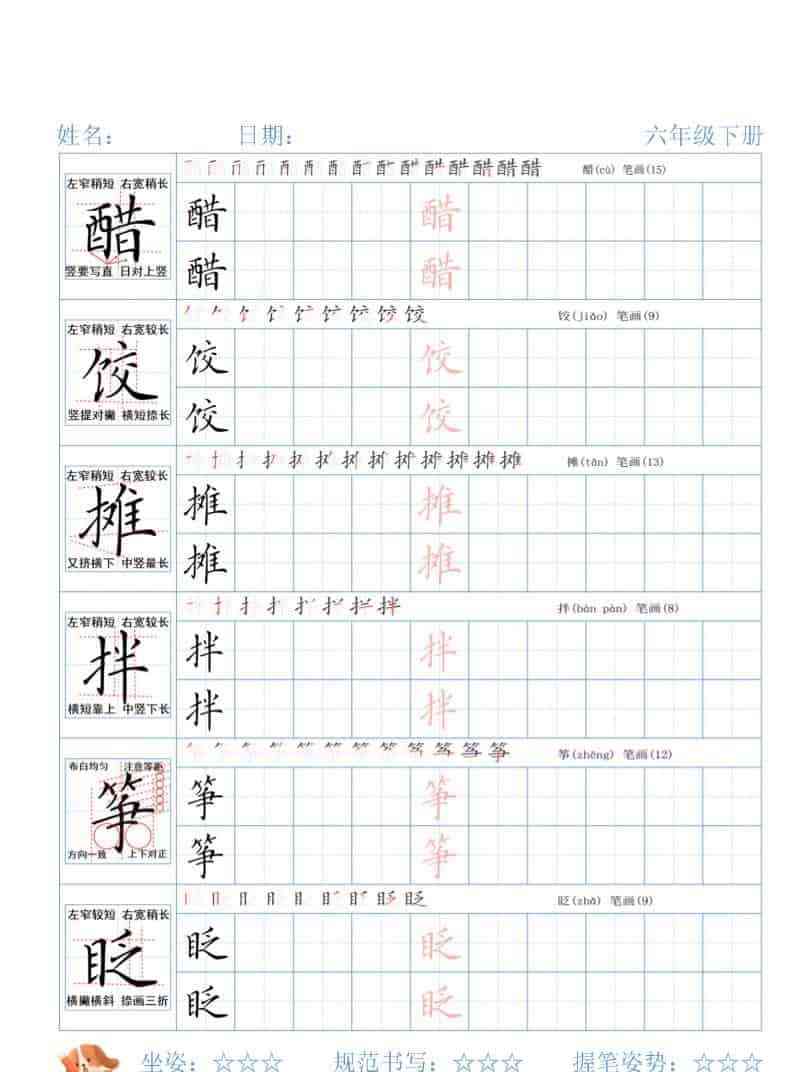 姓名： 日期： 六年级下册
左窄稍短 右宽稍长
醋(cù) 笔画(15)
醋
竖要写直 日对上竖
醋 醋
醋 醋
左窄稍短 右宽较长
饺(jiǎo) 笔画(9)
饺
竖提对撇 横短捺长
饺 饺
饺 饺
左窄稍短 右宽较长
摊(tān) 笔画(13)
摊
又挤横下 中竖最长
摊 摊
摊 摊
左窄稍短 右宽较长
拌(bàn pàn) 笔画(8)
拌
横短靠上 中竖下长
拌 拌
拌 拌
布白均匀 注意等距
筝(zhēng) 笔画(12)
筝
方向一致 上下对正
筝 筝
筝 筝
左窄较短 右宽稍长
眨(zhǎ) 笔画(9)
眨
横撇横斜 捺画三折
眨 眨
眨 眨
坐姿：☆☆☆ 规范书写：☆☆☆ 握笔姿势：☆☆☆